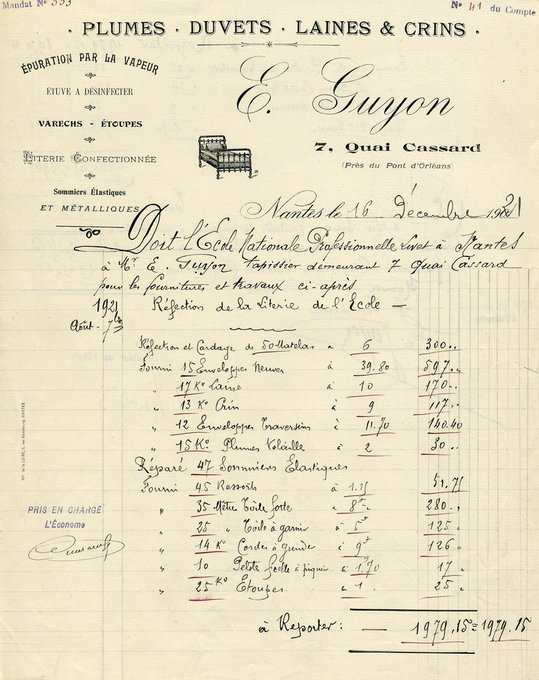 Mandat N° 593
N° 41 du Compte
· PLUMES · DUVETS · LAINES & CRINS ·
ÉPURATION PAR LA VAPEUR
ÉTUVE A DÉSINFECTER
VARECHS - ÉTOUPES
LITERIE CONFECTIONNÉE
Sommiers Élastiques
ET MÉTALLIQUES
E. Guyon
7, Quai Cassard
(Près du Pont d'Orléans)
Nantes le 16 Décembre 1921
Doit l'Ecole Nationale Professionnelle Livet à Nantes
à Mr E. Guyon tapissier demeurant 7 Quai Cassard
pour les fournitures et travaux ci-après
1921 Réfection de la Literie de l'École —
Août - 7
Réfection et Cardage de 50 Matelas à 6 300 ..
Fourni 15 Enveloppes Neuves à 39.80 597 ..
" 17 Ko Laine à 10 170 ..
" 13 Ko Crin à 9 117 ..
" 12 Enveloppes Traversins à 11.70 140.40
" 15 Ko Plumes Volaille à 2 30 ..
Réparé 47 Sommiers Elastiques
Fourni 45 Ressorts à 1.15 51.75
" 35 Mètre Toile forte à 8 280 ..
" 25 " Toile à garnir à 5 125 ..
" 14 Ko Cordes à guinde à 9 126 ..
" 10 Pelote ficelle à piquer à 1.70 17 ..
" 25 Ko Etoupes à 1 . 25 ..
à Reporter : — 1979,15 = 1979.15
PRIS EN CHARGE
L'Économe